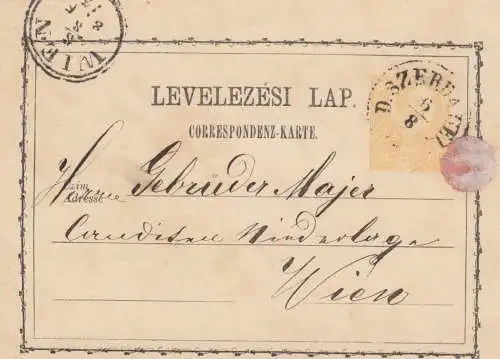 WIEN
LEVELEZÉSI LAP.
CORRESPONDENZ-KARTE.
D. SZERDAHELY
6/8
Czim
Adresse
Herren Gebrüder Majer
Canditen Niederlage
Wien